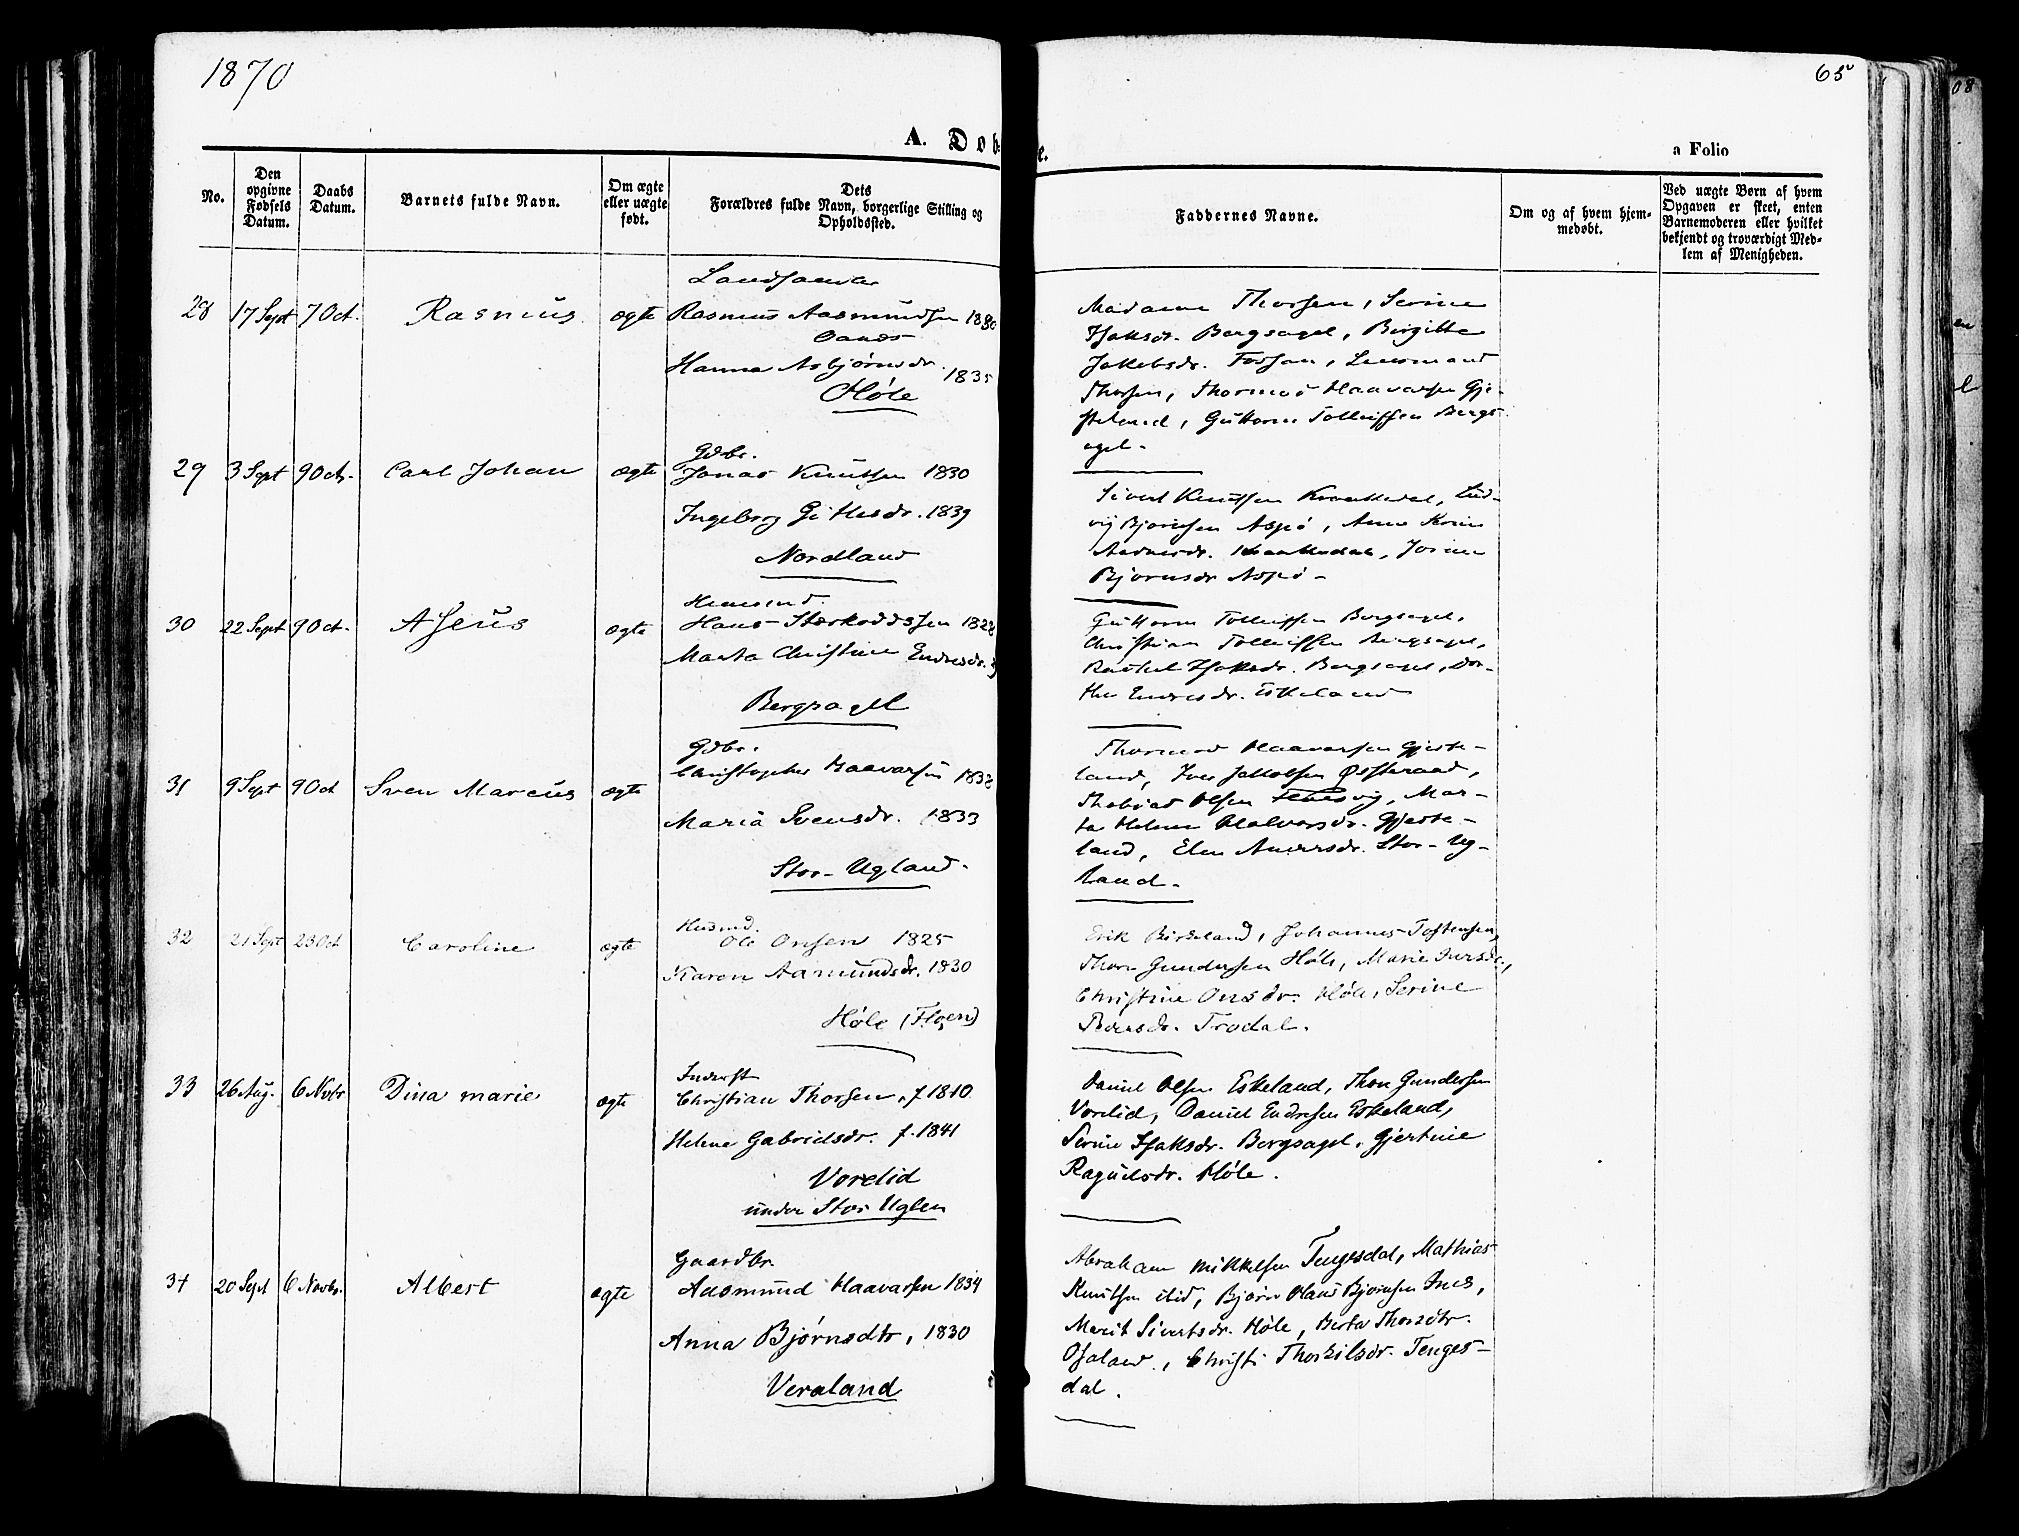 1870
65
A. Døbte.
a Folio
No.
Den opgivne Fødsels Datum.
Daabs Datum.
Barnets fulde Navn.
Om ægte eller uægte født.
Dets Forældres fulde Navn, borgerlige Stilling og Opholdssted.
Faddernes Navne.
Om og af hvem hjemmedøbt.
Ved uægte Børn af hvem Opgaven er skeet, enten Barnemoderen eller hvilket bekjendt og troværdigt Medlem af Menigheden.
28 17 Sept 7 Oct. Rasmus ægte
Rasmus Aasmundsen
Hanna Asbjørnsdr. 1835
Høle
Madame Thorsen, Serine
Isaksdr. Bergsagel, Birgitte
Jakobsdr. Fossan, Lensmand
Thorsen, Thormod Haavarsen Gje-
steland, Guttorm Tolleifsen Bergs-
agel.
29 3 Sept 9 Oct. Carl Johan ægte
Gdbr.
Jonas Knutsen 1830
Ingeborg Gitlesdr. 1839
Nordland
Sivert Knutsen, Lud-
vig Bjørnsen Aspø, Anne
Bjørnsdr Aspø
30 22 Sept 9 Oct. Aseus ægte
Husmd.
Hans Størkoddssen
Marta Christine Endresdr.
Bergsagel
Guttorm Tolleifsen Bergsagel,
Christian Tolleifsen Bergsagel,
Rachel Isaksdr. Bergsagel, Dor-
thea Endresdr. Eskeland
31 9 Sept 9 Oct Sven Marcus ægte
Gdbr.
Christopher Haavarsen
Maria Svensdr. 1833
Stor-Ugland.
Thormod Haavarsen Gjeste-
land, Iver Jakobsen
Thobias Olsen, Mar-
ta Helene Halvorsdr. Gjeste-
land, Elen Andersdr. Stor-Ug-
land.
32 21 Sept 23 Oct Caroline ægte
Husmd.
Ole Onsen 1825
Karen Aamundsdr. 1830
Høle (Floen)
Erik Birkeland, Johannes Tostensen,
Thore Gundersen Høle, Marie Iversdr.,
Christine Onsdr. Høle, Serine
Pedersdr. Trodal.
33 26 Aug. 6 Novbr Dina marie ægte
Inderst
Christian Thorsen, f 1810
Helene Gabrielsdr. f. 1841
Vorelid
under Stor Uglen
Daniel Olsen Eskeland, Thore Gundersen
Vorelid, Daniel Endresen Eskeland,
Serine Isaksdr. Bergsagel, Gjertine
Ragnildsdr. Høle.
34 20 Sept 6 Novbr. Albert ægte
Gaardbr.
Aasmund Haavarsen 1834
Anna Bjørnsdtr, 1830
Veraland
Abraham Mikkelsen Tengesdal, Mathias
Knutsen ibid, Bjørn Hans Bjørnsen Ims,
Merit Sivertsdr. Høle, Berta Thorsdtr.
Osaland, Christi Thorkilsdr. Tenges-
dal.